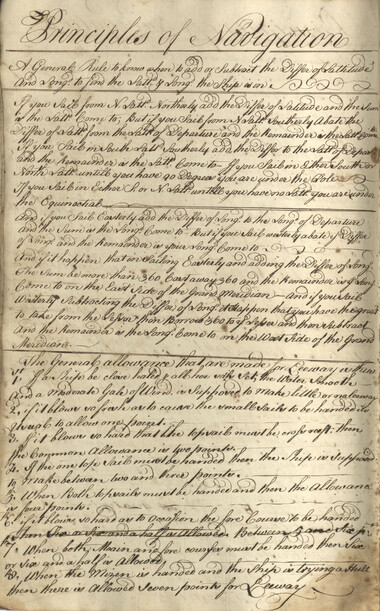 Principles of Navigation
A General Rule to know when to add or Subtract the Differ of Lattitude
and Longd to find the Latt & Longd the Ship is in
If you Sail from N Latt Northerly add the Differ of Latitude and the Sum
is the Latt Come to, But if you Sail from N Latt Southerly Abate the
Differ of Latt from the Latt of Departure and the Remainder is the Latt Come to
If you Sail in South Latt Southerly add the Differ to the Latt of Depart
and the Remainder is the Latt Come to If you Sail in Either South or
North Latt untill you have 90 Degrees you are under the Pole
If you Sail in Either S. or N Latt untill you have no Latt you are under
the Equinoctial
And if you Sail Easterly add the Differ of Longd to the Longd of Departure
and the Sum is the Longd Come to But if you Sail westerly abate ye Differ
of Longd and the Remainder is your Longd Come to
And if it happen that in Sailing Easterly and adding the Differ of Longd
The Sum be more than 360 Cast away 360 and the Remainder is ye Longd
Come to on the East Side of the Grand Meridian And if you Sail
Westerly Subtracting the Differ of Longd it happen that you have the great
to take from the Lesser then borrow 360 to ye Lesser and then Subtract
and the Remainder is the Longd Come to on the West Side of the Grand
Meridian
The General allowance that are made for Leeway is thus
1. If a Ship be close hauld all her Sails Set the Water Smooth
and a moderate Gale of Wind is Supposed to make little or no Leeway
2. if it blows so fresh as to cause the small Sails to be handed its
Usual to allow one point
3. if it blows so hard that the topsails must be close reeft then
the Common Allowance is two points
4. If the one top Sail must be handed then the Ship is Supposd
to make between two and three points
5. When Both topsails must be handed and then the Allowance
is four points
6. if it blows so hard as to occasion the fore Course to be handed
Between 5 and Six
7. When both Main and fore courses must be handed then Six
or Six and a half is Allowed
8. When the Mizen is handed and the Ship is trying a Hull
then there is Allowed Seven points for Leeway